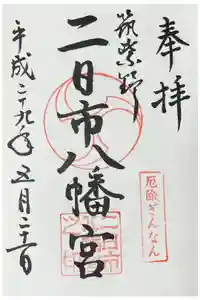 奉拝
筑紫野
二日市八幡宮
平成二十九年五月
厄除ぎんなん